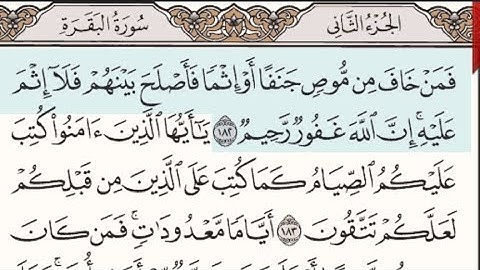 الجُزْءُ الثَّانِى
سُورَةُ البَقَرَةِ
فَمَنْ خَافَ مِن مُّوصٍ جَنَفًا أَوْ إِثْمًا فَأَصْلَحَ بَيْنَهُمْ فَلَآ إِثْمَ
عَلَيْهِ ۚ إِنَّ ٱللَّهَ غَفُورٌ رَّحِيمٌ ١٨٢ يَـٰٓأَيُّهَا ٱلَّذِينَ ءَامَنُوا۟ كُتِبَ
عَلَيْكُمُ ٱلصِّيَامُ كَمَا كُتِبَ عَلَى ٱلَّذِينَ مِن قَبْلِكُمْ
لَعَلَّكُمْ تَتَّقُونَ ١٨٣ أَيَّامًا مَّعْدُودَٰتٍ ۚ فَمَن كَانَ